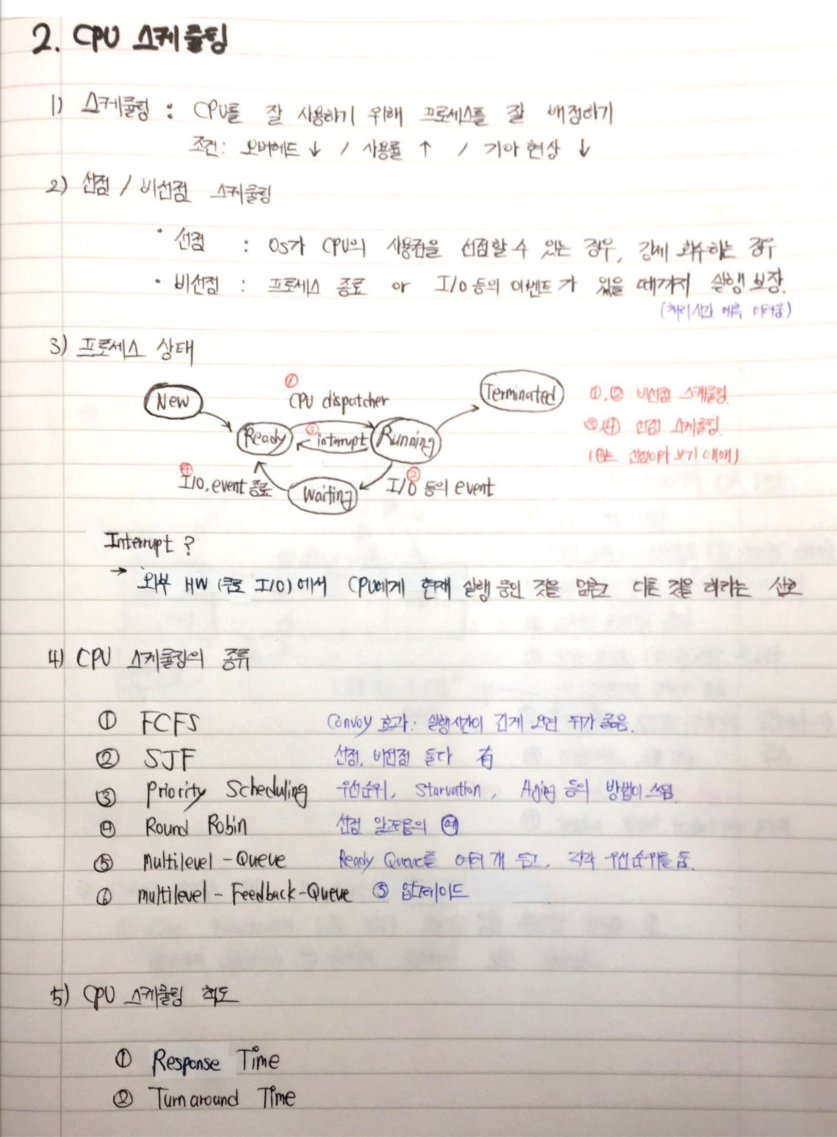 2. CPU 스케쥴링
1) 스케쥴링 : CPU를 잘 사용하기 위해 프로세스를 잘 배정하기
조건: 오버헤드 ↓ / 사용률 ↑ / 기아 현상 ↓
2) 선점 / 비선점 스케쥴링
· 선점 : OS가 CPU의 사용권을 선점할 수 있는 경우, 강제 회수하는 경우
· 비선점 : 프로세스 종료 or I/O 등의 이벤트가 있을 때까지 실행 보장.
(처리시간 예측 어려움)
3) 프로세스 상태
①
New
CPU dispatcher
Terminated
①,② 비선점 스케쥴링
Ready
③ interrupt
Running
③,④ 선점 스케쥴링
(④는 선점이라 보기 애매)
④
I/O, event 종료
Waiting
②
I/O 등의 event
Interrupt ?
→ 외부 HW (주로 I/O)에서 CPU에게 현재 실행 중인 것을 멈추고 다른 것을 하라는 신호
4) CPU 스케쥴링의 종류
① FCFS Convoy 효과: 실행시간이 긴게 오면 뒤가 굶음.
② SJF 선점, 비선점 둘다 有
③ Priority Scheduling 우선순위, Starvation, Aging 등의 방법이 쓰임
④ Round Robin 선점 알고리즘의
⑤ Multilevel-Queue Ready Queue를 여러 개 두고, 각각 우선순위를 둠.
⑥ multilevel-Feedback-Queue ⑤ 업그레이드
5) CPU 스케쥴링 척도
① Response Time
② Turnaround Time